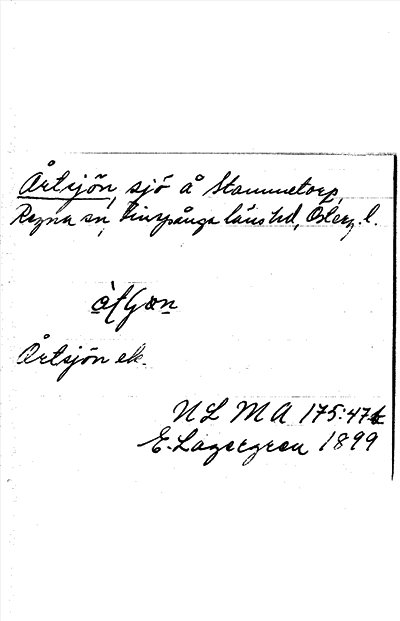 Årtsjön, sjö å Stammetorp,
Regna sn, Finspånga läns hd, Österg. l.
Årtsjön ek.
N L M A 175:47
E. Lagergren 1899